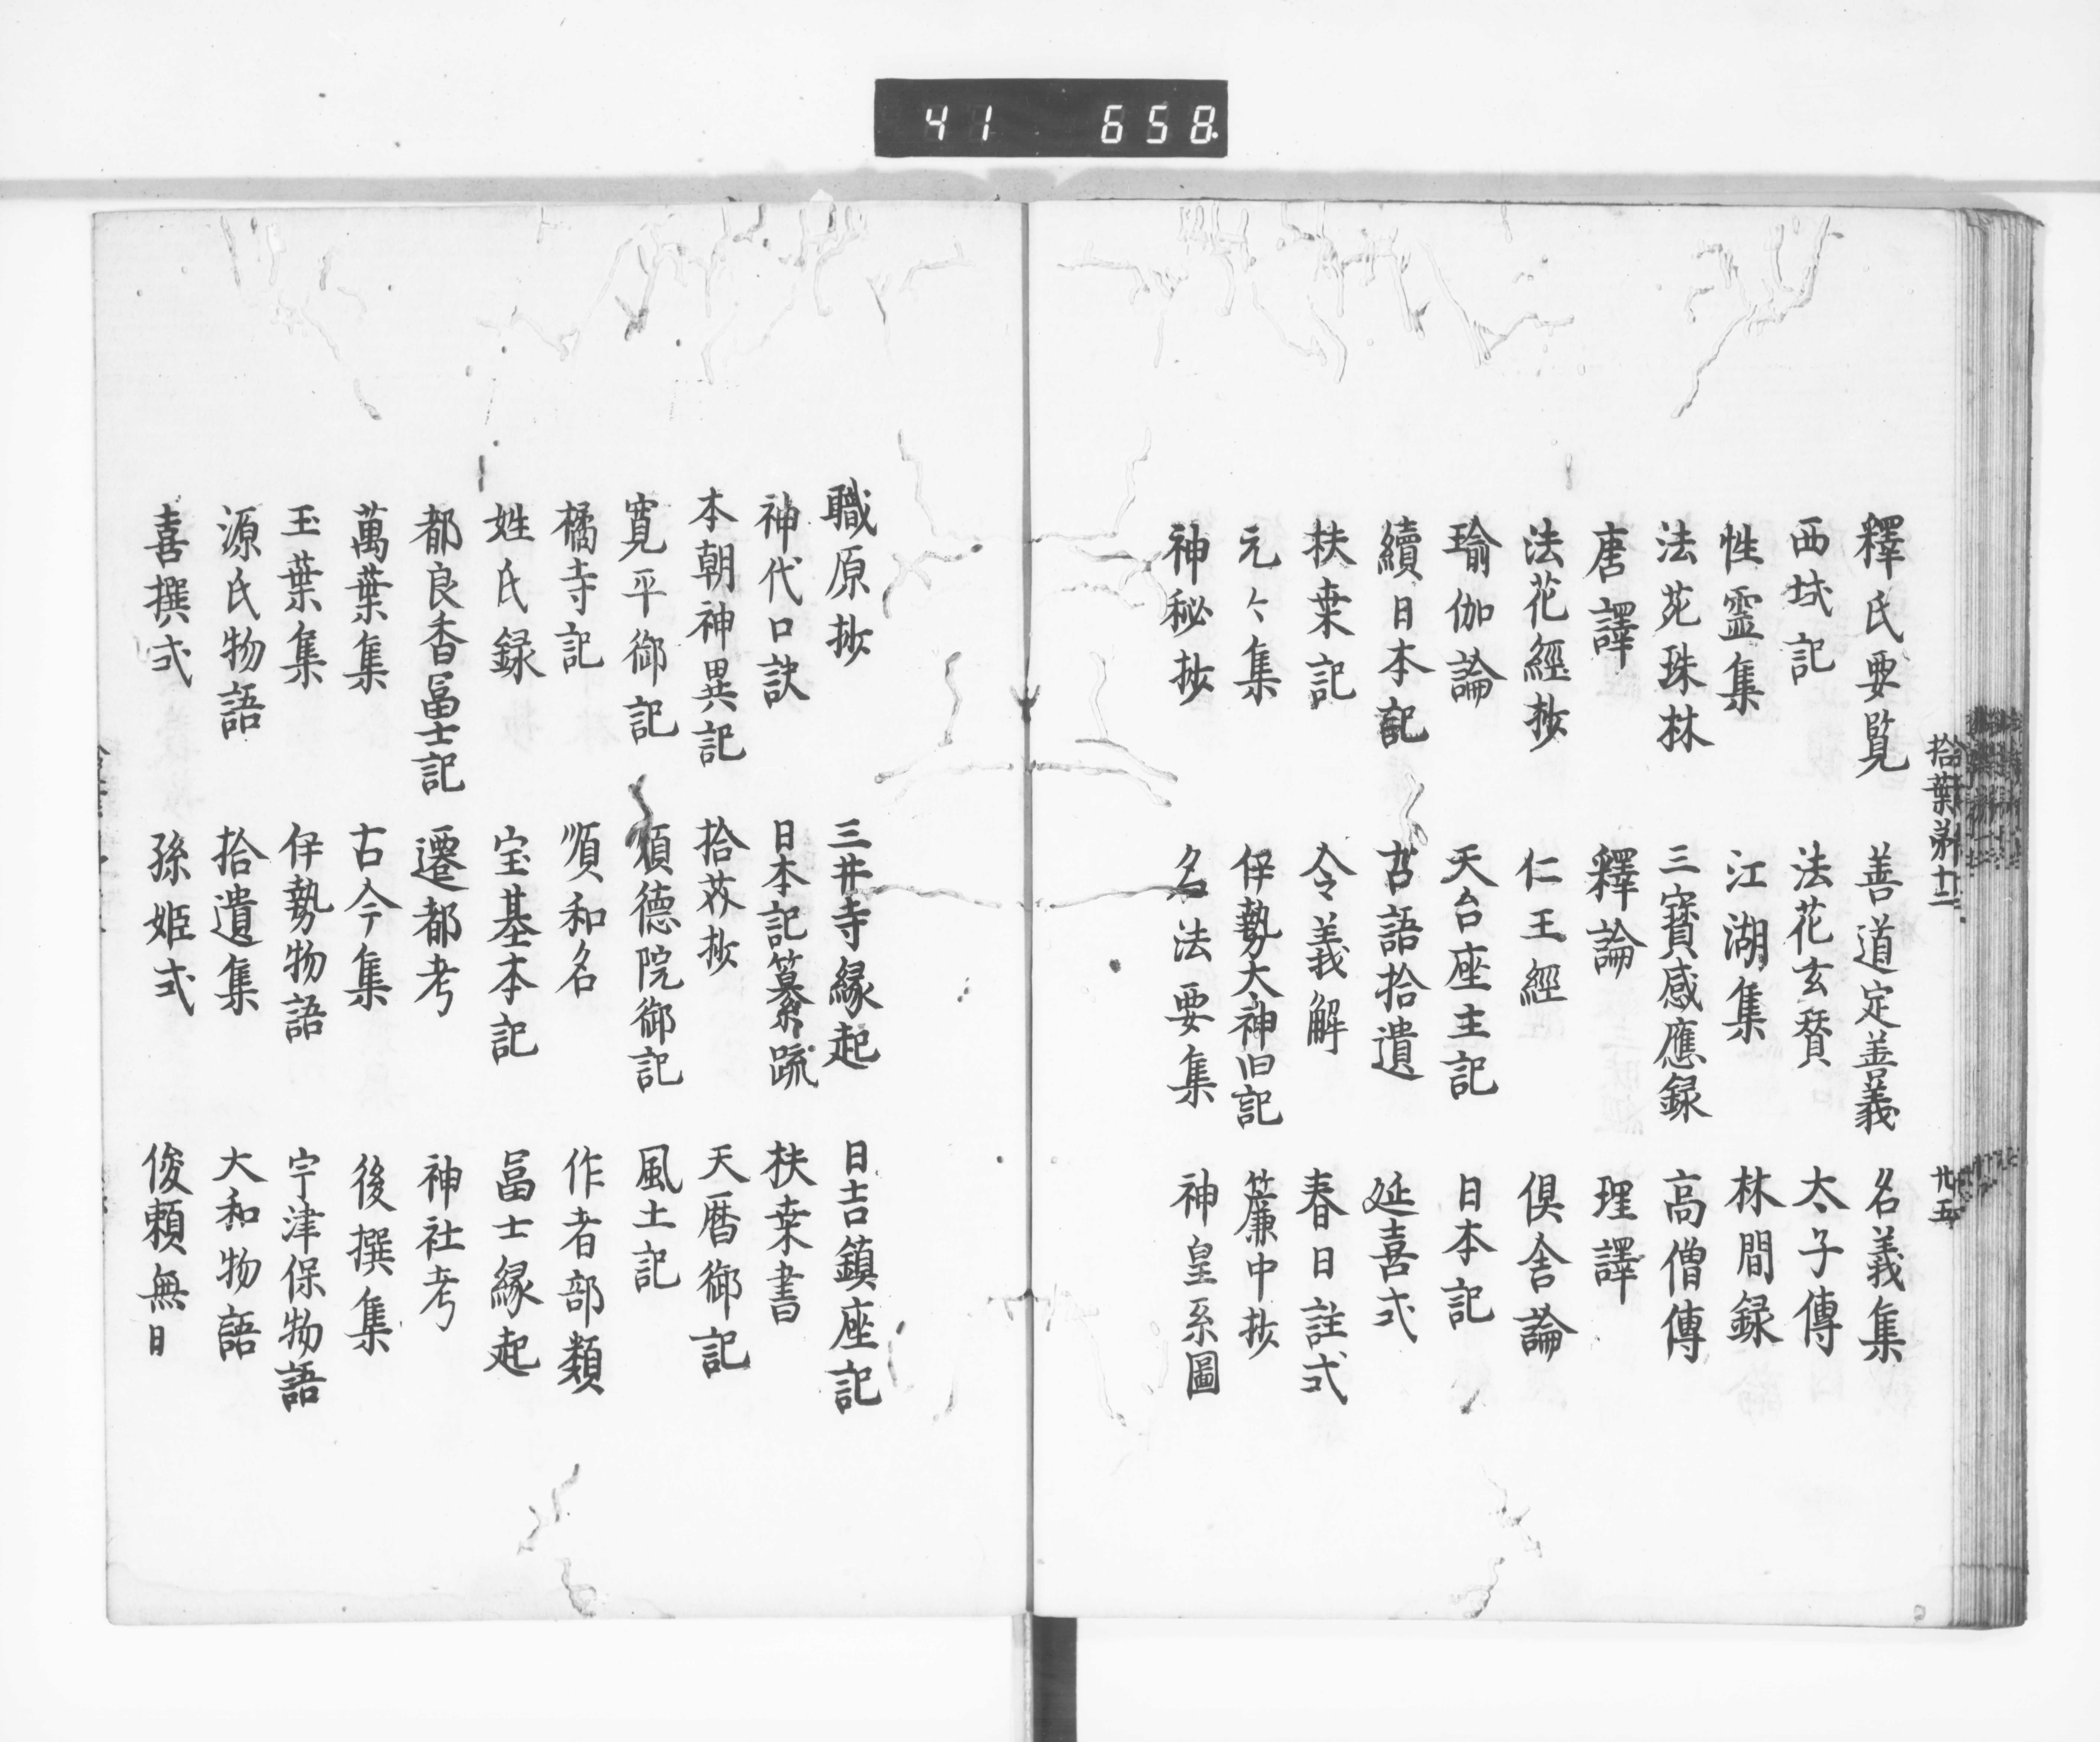 41 658
拾葉第十二 廿五
釋氏要覧 善道定善義 名義集
西域記 法花玄賛 太子傳
性霊集 江湖集 林間録
法苑珠林 三寳感應録 高僧傳
唐譯 釋論 理譯
法花經抄 仁王經 倶舎論
瑜伽論 天台座主記 日本記
續日本記 古語拾遺 延喜式
扶桒記 令義解 春日註式
元々集 伊勢大神旧記 簾中抄
神秘抄 名法要集 神皇系圖
職原抄 三井寺縁起 日吉鎮座記
神代口訣 日本記纂疏 扶桒書
本朝神異記 拾芥抄 天暦御記
寛平御記 順德院御記 風土記
橘寺記 順和名 作者部類
姓氏録 宝基本記 冨士縁起
都良香冨士記 遷都考 神社考
萬葉集 古今集 後撰集
玉葉集 伊勢物語 宇津保物語
源氏物語 拾遺集 大和物語
喜撰式 孫姫式 俊頼無日